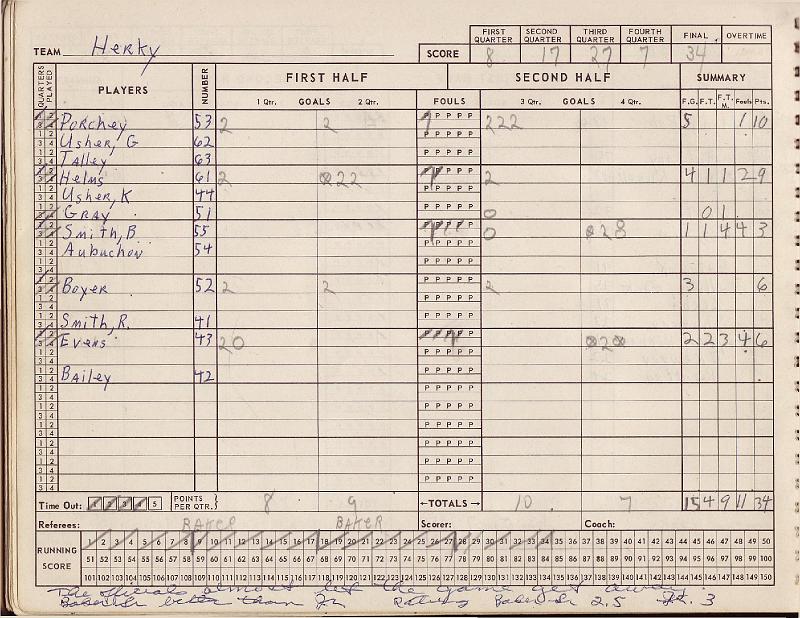 FIRST QUARTER SECOND QUARTER THIRD QUARTER FOURTH QUARTER FINAL OVERTIME
TEAM Herky SCORE 8 17 27 7 34
QUARTERS PLAYED PLAYERS NUMBER FIRST HALF SECOND HALF SUMMARY
1 Qtr. GOALS 2 Qtr. FOULS 3 Qtr. GOALS 4 Qtr. F.G. F.T. F.T.M. Fouls Pts.
Porchey 53 2 2 P P P P P 222 5 1 10
Usher, G 62
Talley 63
Helms 61 2 22 2 4 1 1 2 9
Usher, K 44
Gray 51 0 0 1
Smith, B 55 0 1 1 4 4 3
Aubuchon 54
Boyer 52 2 2 2 3 6
Smith, R. 41
Evens 43 20 2 2 3 4 6
Bailey 42
Time Out: 1 2 3 4 5 POINTS PER QTR. 8 9 ←TOTALS→ 10 7 15 4 9 11 34
Referees: BAKER BAKER Scorer: Coach:
RUNNING SCORE
1 2 3 4 5 6 7 8 9 10 11 12 13 14 15 16 17 18 19 20 21 22 23 24 25 26 27 28 29 30 31 32 33 34 35 36 37 38 39 40 41 42 43 44 45 46 47 48 49 50
51 52 53 54 55 56 57 58 59 60 61 62 63 64 65 66 67 68 69 70 71 72 73 74 75 76 77 78 79 80 81 82 83 84 85 86 87 88 89 90 91 92 93 94 95 96 97 98 99 100
101 102 103 104 105 106 107 108 109 110 111 112 113 114 115 116 117 118 119 120 121 122 123 124 125 126 127 128 129 130 131 132 133 134 135 136 137 138 139 140 141 142 143 144 145 146 147 148 149 150
The officials almost let the game get away
Baker Sr better than Jr Rating Baker Sr 2.5 Jr. 3